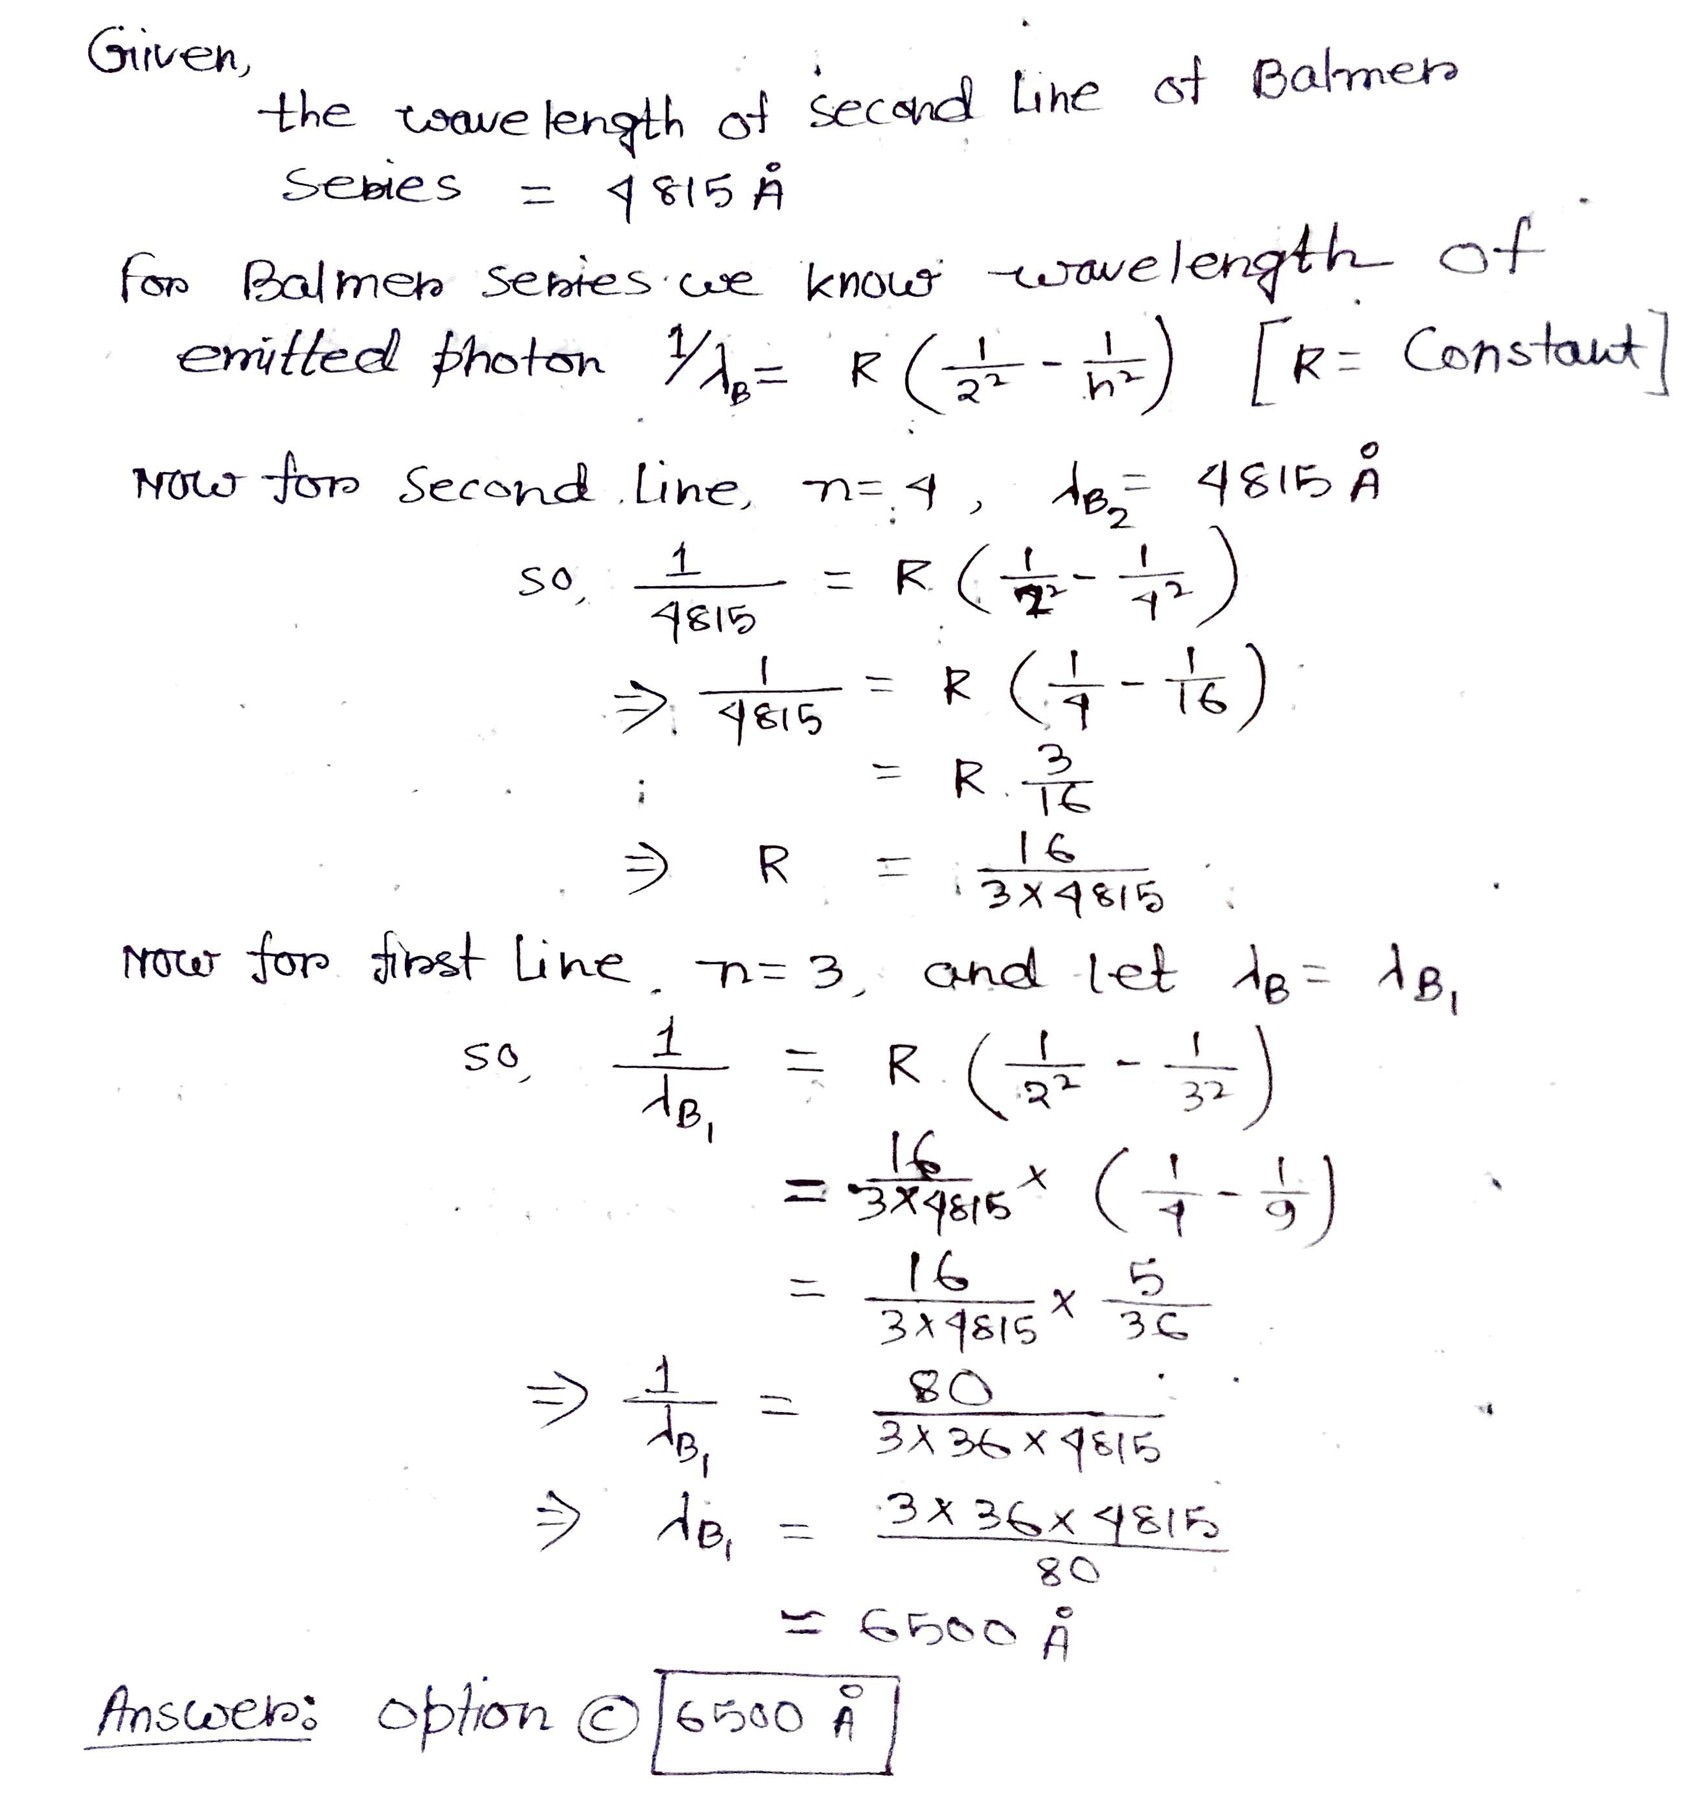 Given,
the wavelength of second line of Balmer
series = 4815 Å
for Balmer series we know wavelength of
emitted photon 1/λ_B = R (1/2² - 1/n²) [R = Constant]
Now for second line, n = 4, λ_B₂ = 4815 Å
so, 1/4815 = R (1/2² - 1/4²)
⇒ 1/4815 = R (1/4 - 1/16)
= R. 3/16
⇒ R = 16/(3×4815)
Now for first line, n = 3, and let λ_B = λ_B₁
so, 1/λ_B₁ = R (1/2² - 1/3²)
= 16/(3×4815) × (1/4 - 1/9)
= 16/(3×4815) × 5/36
⇒ 1/λ_B₁ = 80/(3×36×4815)
⇒ λ_B₁ = (3×36×4815)/80
= 6500 Å
Answer: option ⓒ 6500 Å